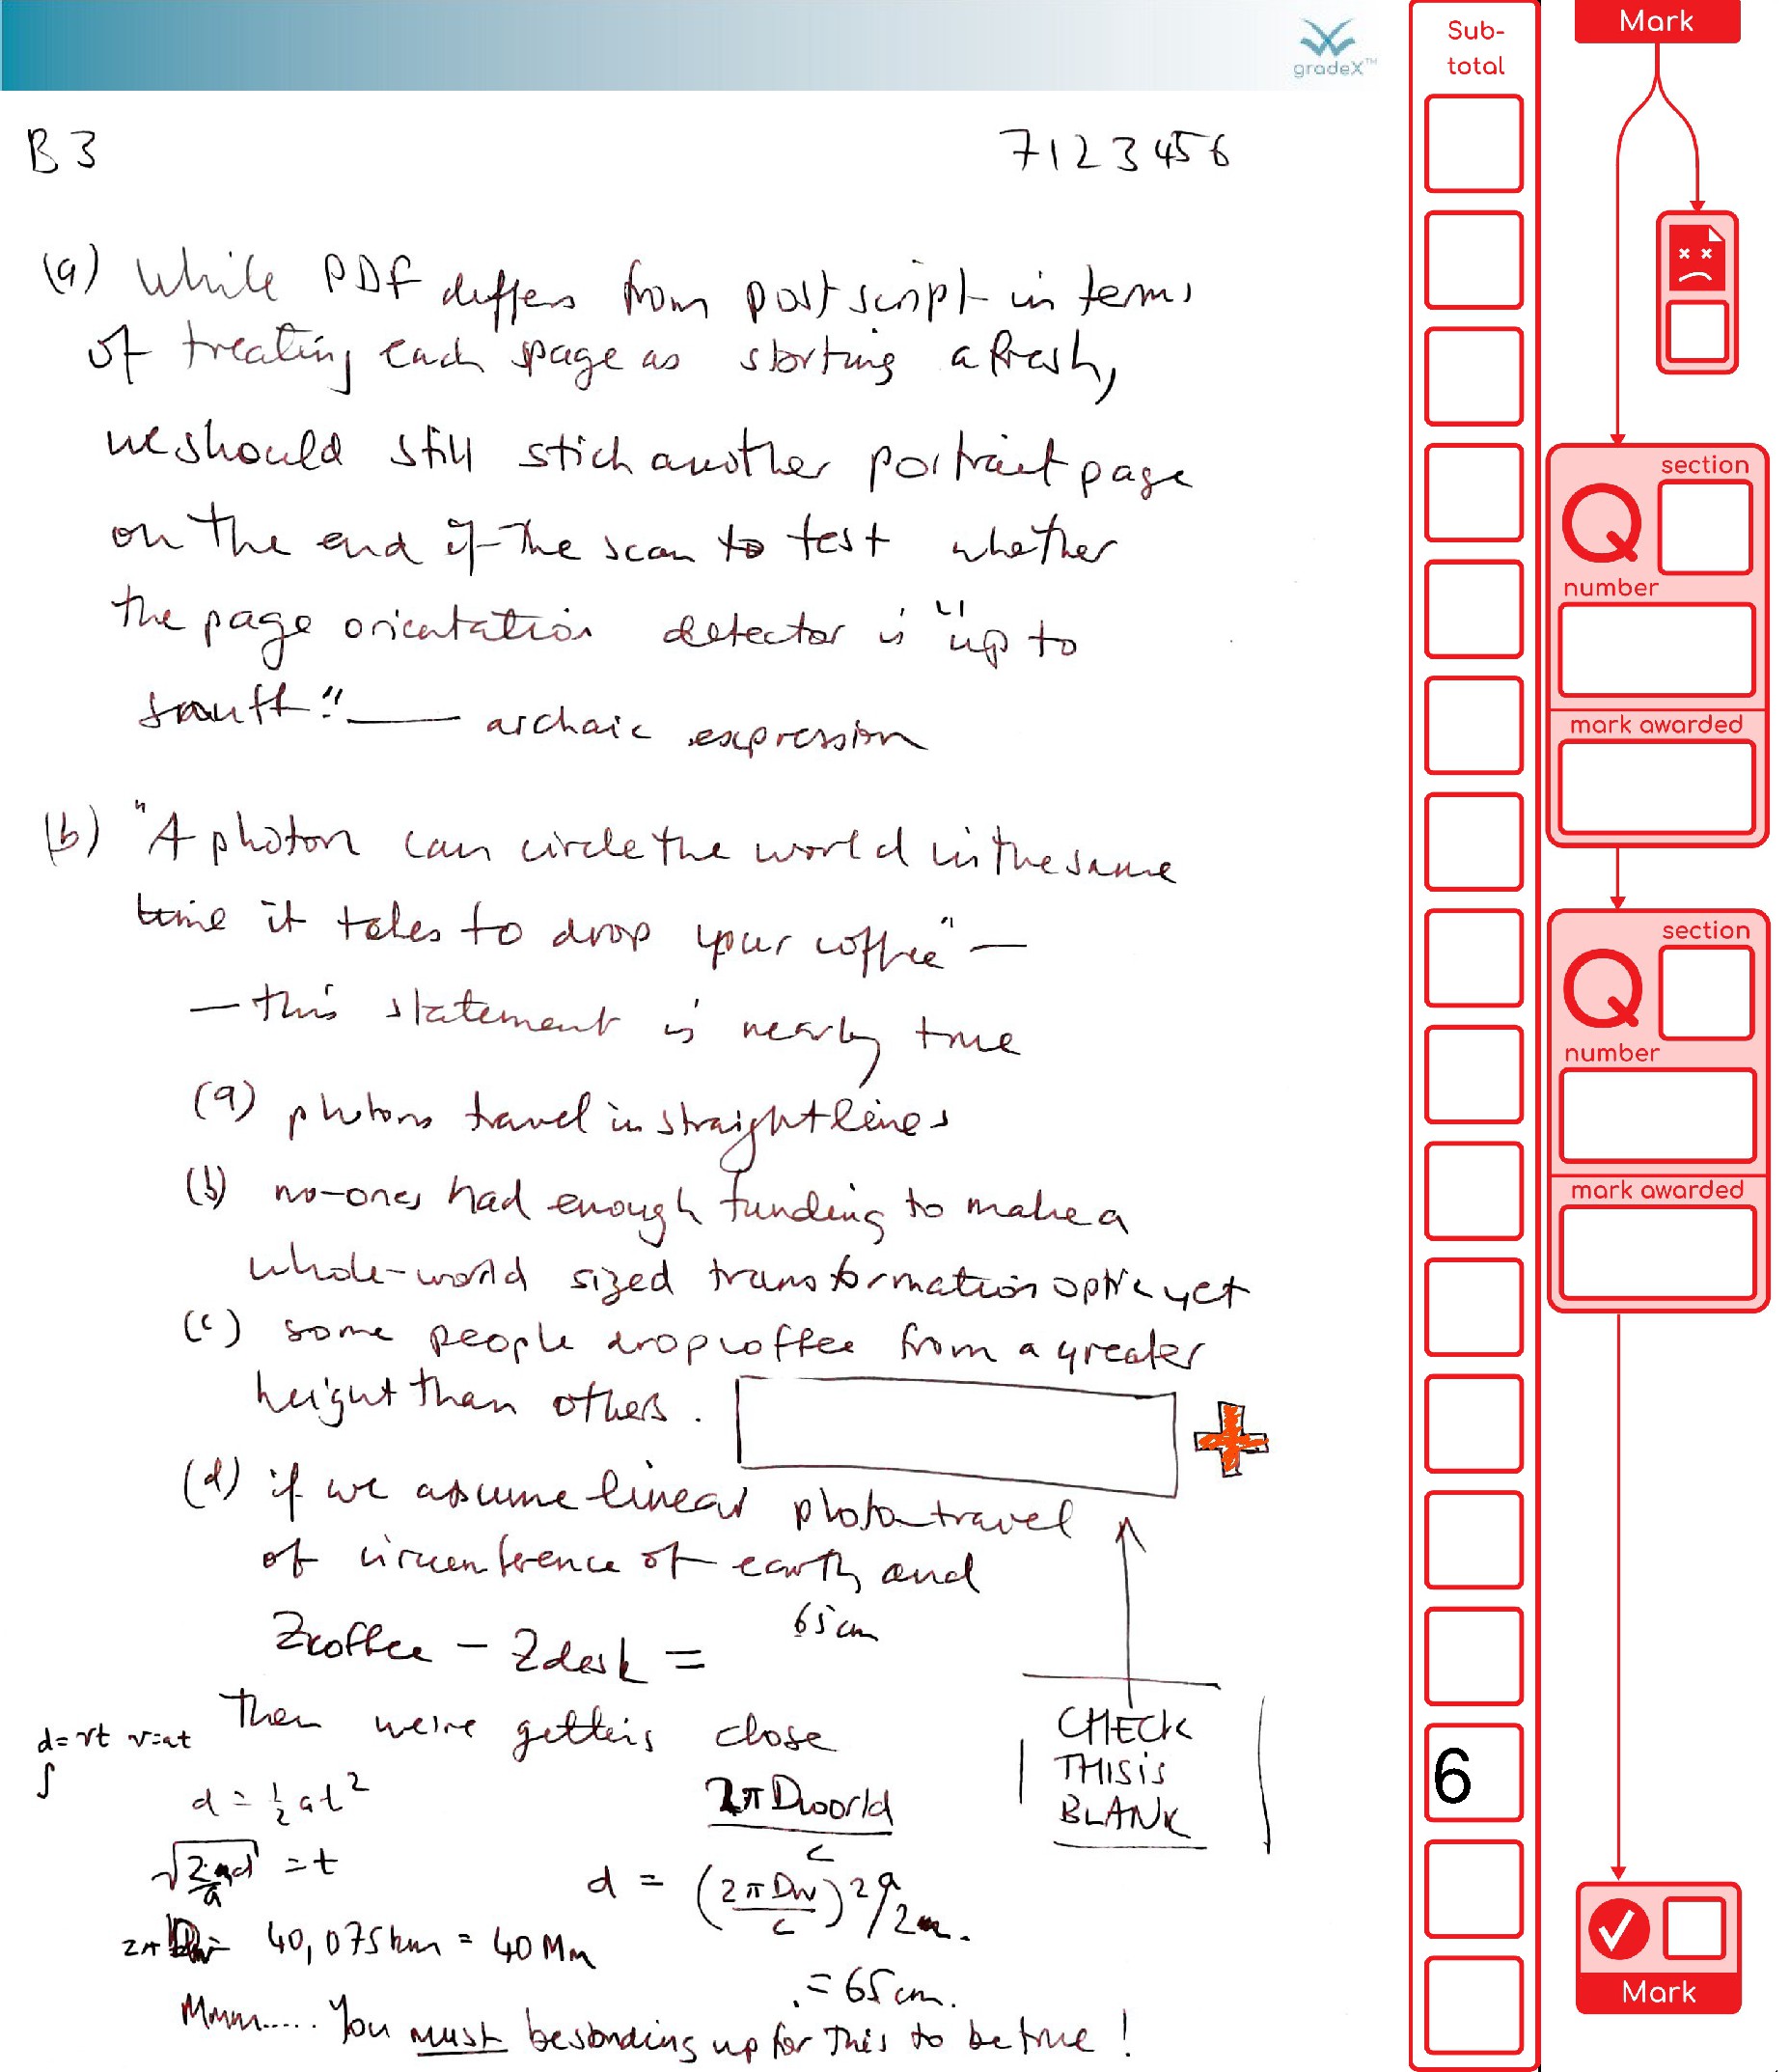 gradeX™
B3
7123456
(a) While PDF differs from postscript in terms
of treating each page as starting afresh,
we should still stich another portrait page
on the end of the scan to test whether
the page orientation detector is "up to
snuff" — archaic expression
(b) "A photon can circle the world in the same
time it takes to drop your coffee" —
— this statement is nearly true
(a) photons travel in straight lines
(b) no-ones had enough funding to make a
whole-world sized transformation optic yet
(c) some people drop coffee from a greater
height than others.
(d) if we assume linear photon travel
of circumference of earth and
Zcoffee − Zdesk = 65cm
Then we're getting close
d=vt v=at
∫
d = ½at²
√2d/a = t
2πDworld/c
d = (2πDw/c)² a/2
= 65cm.
2πDw= 40,075km = 40Mm
Mmm..... You must be standing up for this to be true!
CHECK
THIS is
BLANK
Sub-
total
6
Mark
section
Q
number
mark awarded
section
Q
number
mark awarded
Mark